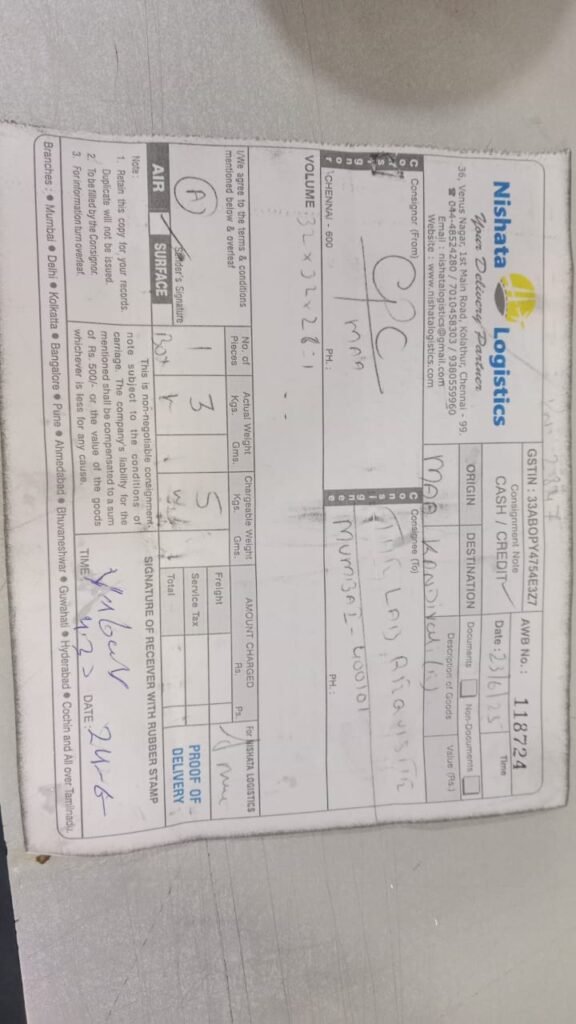 Nishata Logistics
Your Delivery Partner
36, Venus Nagar, 1st Main Road, Kolathur, Chennai - 99.
☎ 044-48524280 / 7010458303 / 9380559960
Email : nishatalogistics@gmail.com
Website : www.nishatalogistics.com
GSTIN : 33ABOPY4754E3Z7
Consignment Note
CASH / CREDIT
AWB No. : 118724
Date : 23/6/25
Time
ORIGIN
DESTINATION
Documents
Non-Documents
MAA
KANDIVALI
Description of Goods
Value (Rs.)
Consignor
Consignor (From)
CPC
MAA
CHENNAI - 600
PH. :
Consignee
Consignee (To)
THE LAB
MUMBAI - 400101
PH. :
VOLUME : 32 x 32 x 26 = 1
I/We agree to the terms & conditions
mentioned below & overleaf
(A)
Sender's Signature
AIR
SURFACE
No. of
Pieces
1
Box
Actual Weight
Kgs.
Gms.
3
Chargeable Weight
Kgs.
Gms.
5
AMOUNT CHARGED
Rs.
Ps.
Freight
Service Tax
Total
For NISHATA LOGISTICS
PROOF OF
DELIVERY
Note :
1. Retain this copy for your records.
Duplicate will not be issued.
2. To be filled by the Consignor.
3. For information turn overleaf.
This is non-negotiable consignment
note subject to the conditions of
carriage. The company's liability for the
mentioned shall be compensated to a sum
of Rs. 500/- or, the value of the goods
whichever is less for any cause.
SIGNATURE OF RECEIVER WITH RUBBER STAMP
TIME :
DATE : 24-6
Branches : ● Mumbai ● Delhi ● Kolkatta ● Bangalore ● Pune ● Ahmedabad ● Bhuvaneshwar ● Guwahati ● Hyderabad ● Cochin and All over Tamilnadu